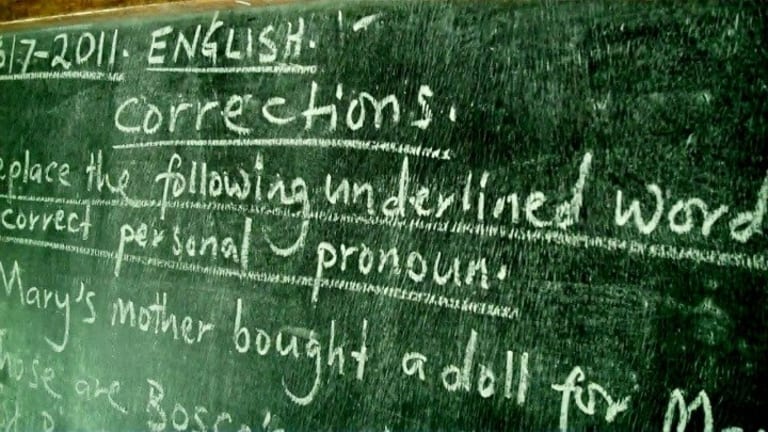 7-2011. ENGLISH.
Corrections.
eplace the following underlined word
correct personal pronoun.
Mary's mother bought a doll for
hose are Bosco's